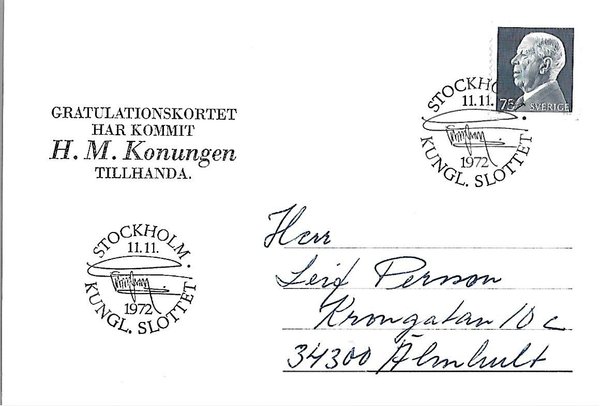 GRATULATIONSKORTET
HAR KOMMIT
H. M. Konungen
TILLHANDA.
75 SVERIGE
STOCKHO
11.11.
1972
KUNGL. SLOTTET
STOCKHOLM
11.11.
1972
KUNGL. SLOTTET
Herr
Leif Persson
Krongatan 10 c
34300 Älmhult